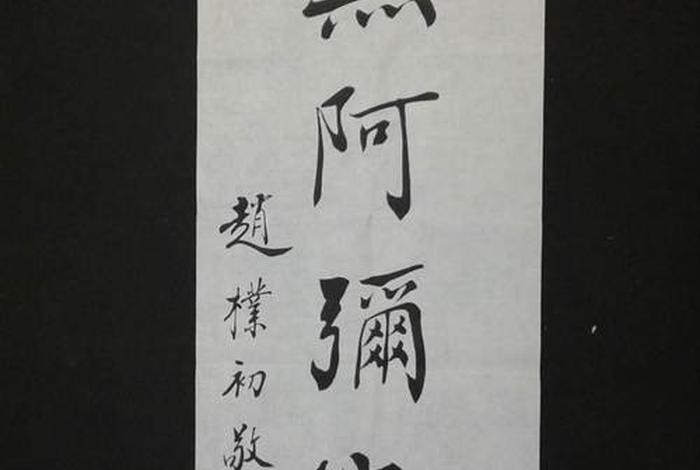 阿彌
趙樸初敬